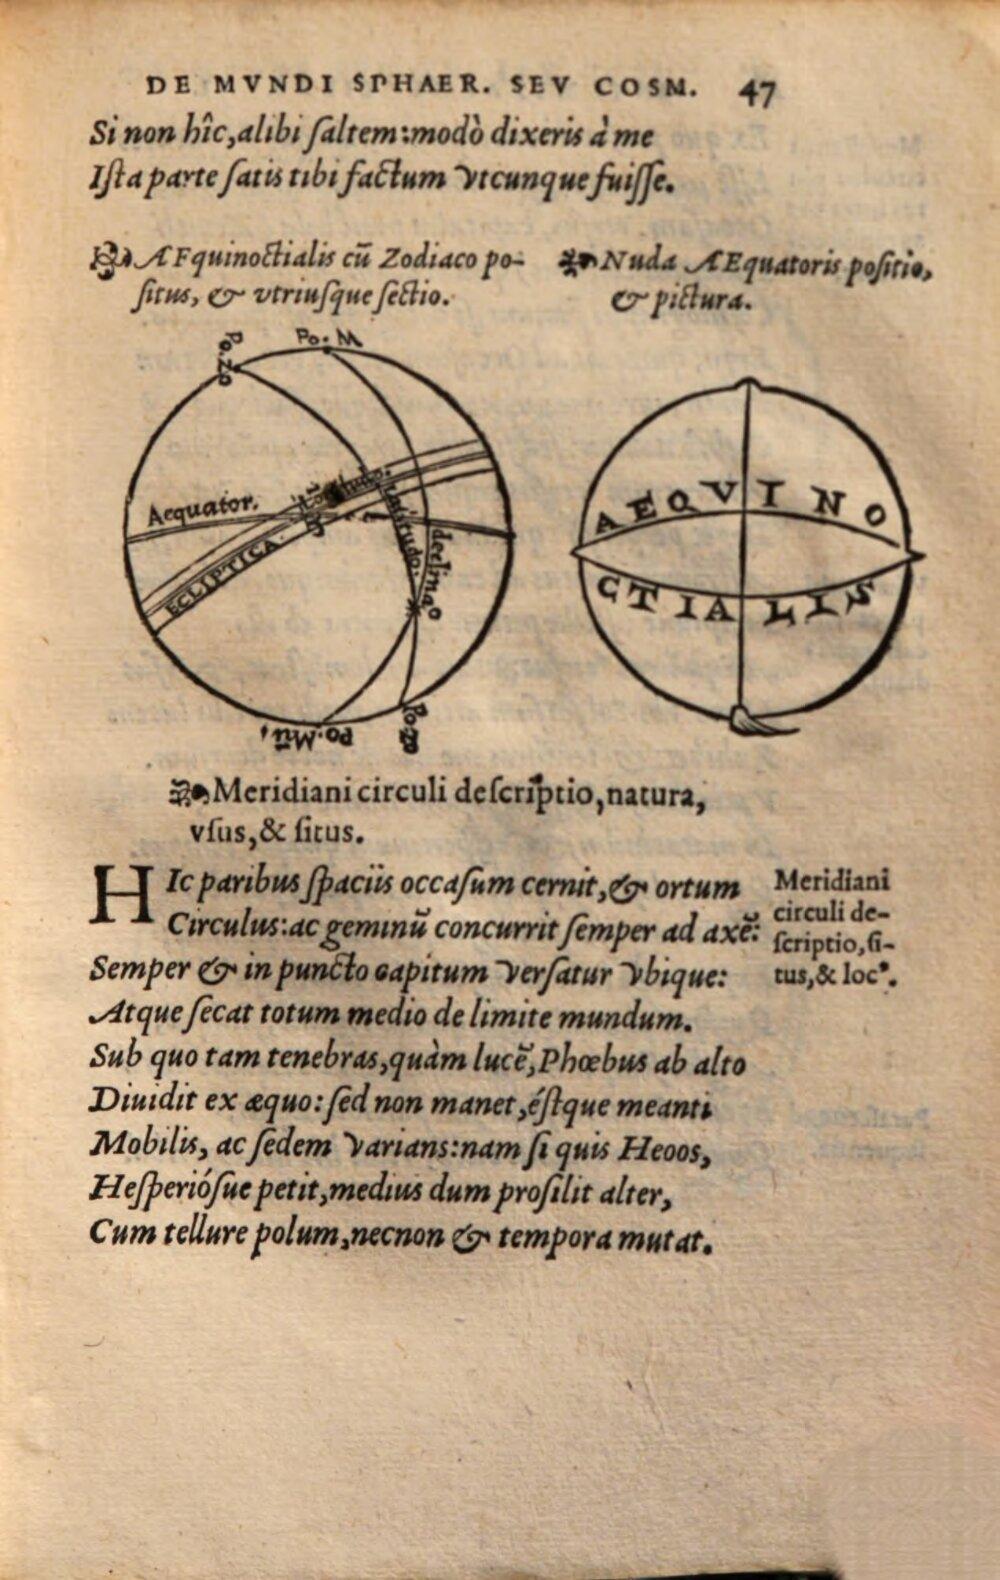 DE MVNDI SPHAER. SEV COSM. 47
Si non hîc, alibi ſaltem: modò dixeris à me
Iſta parte ſatis tibi factum vtcunque fuiſſe.
AEquinoctialis cũ Zodiaco po-
ſitus, & vtriuſque ſectio.
Nuda AEquatoris poſitio,
& pictura.
Po. Zo
Po. M
Aequator.
ECLIPTICA.
Latitudo.
declina°
Po. Mũ,
Po. Zo
AEQVINO
CTIALIS
Meridiani circuli deſcriptio, natura,
vſus, & ſitus.
HIc paribus ſpaciis occaſum cernit, & ortum
Circulus: ac geminũ concurrit ſemper ad axẽ:
Semper & in puncto capitum verſatur vbique:
Atque ſecat totum medio de limite mundum.
Sub quo tam tenebras, quàm lucẽ, Phœbus ab alto
Diuidit ex æquo: ſed non manet, éſtque meanti
Mobilis, ac ſedem varians: nam ſi quis Heoos,
Heſperióſue petit, medius dum proſilit alter,
Cum tellure polum, necnon & tempora mutat.
Meridiani
circuli de-
ſcriptio, ſi-
tus, & locꝰ.